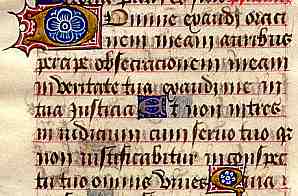 Domine exaudi oracionem meam auribus
percipe obsecrationem meam
in veritate tua exaudi me in
tua Justicia Et non intres
in iudicium cum servo tuo q
non iustificabitur in conspec
tu tuo omnis vivens Quia